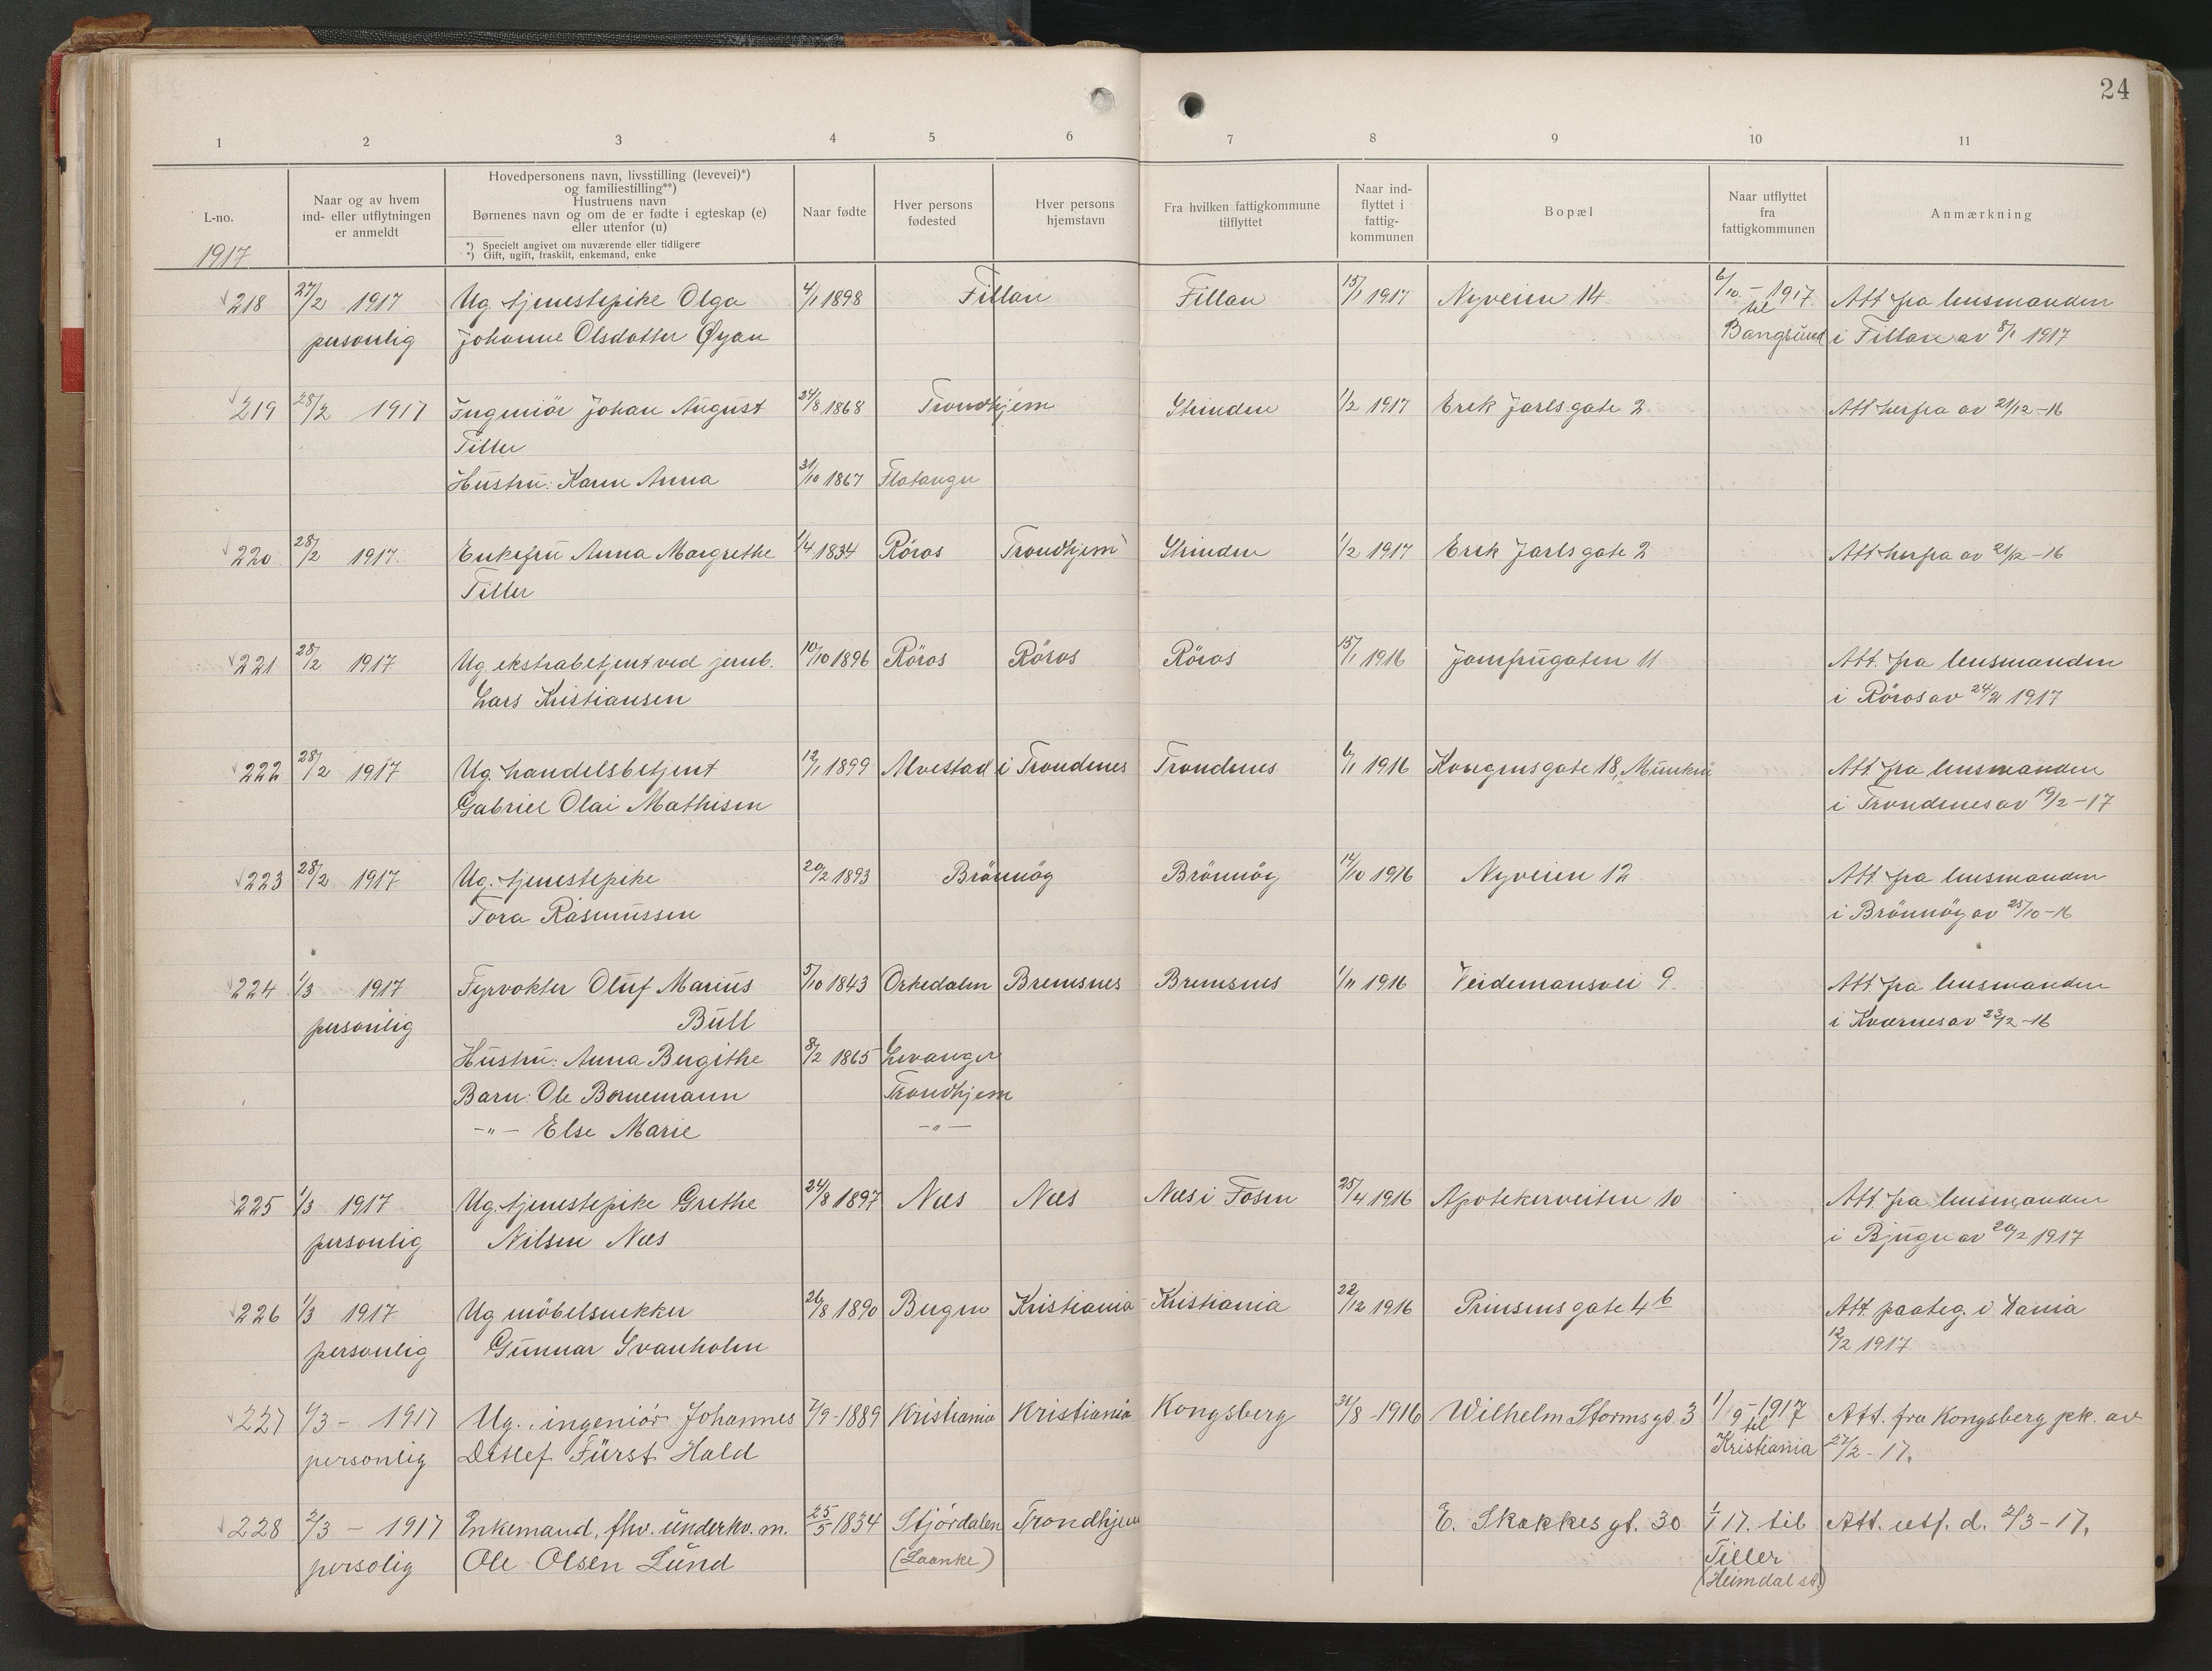 24
1 2 3 4 5 6 7 8 9 10 11
L-no.
1917
Naar og av hvem
ind- eller utflytningen
er anmeldt
Hovedpersonens navn, livsstilling (levevei)*)
og familiestilling**)
Hustruens navn
Børnenes navn og om de er fødte i egteskap (e)
eller utenfor (u)
*) Specielt angivet om nuværende eller tidligere
*) Gift, ugift, fraskilt, enkemand, enke
Naar fødte
Hver persons
fødested
Hver persons
hjemstavn
Fra hvilken fattigkommune
tilflyttet
Naar ind-
flyttet i
fattig-
kommunen
Bopæl
Naar utflyttet
fra
fattigkommunen
Anmærkning
218 27/2 1917 Ug tjenestepike Olga 4/1 1898 Fillan Fillan 15/1 1917 Nyveien 14 6/10 - 1917 Att fra lensmanden
til
personlig Johanne Olsdatter Øyan Bangsund i Fillan av 8/1 1917
219 28/2 1917 Ingeniör Johan August 24/8 1868 Trondhjem Strinden 1/2 1917 Erik Jarlsgate 2 Att herfra av 21/12-16
Tiller
Hustru: Karen Anna 31/10 1867 Flatanger
220 28/2 1917 Enkefru Anna Margrethe 1/4 1834 Röros Trondhjem Strinden 1/2 1917 Erik Jarls gate 2 Att herfra av 21/12-16
Tiller
221 28/2 1917 Ug. ekstrabetjent ved jernb. 10/10 1896 Röros Röros Röros 15/1 1916 Jomfrugaten 11 Att. fra lensmanden
Lars Kristiansen i Röros av 24/2 1917
222 28/2 1917 Ug. handelsbetjent 12/1 1899 Alvestad i Trondenes Trondenes 6/1 1916 Kongensgate 18, Munken Att fra lensmanden
Gabriel Olai Mathisen i Trondenes av 19/2-17
223 28/2 1917 Ug. tjenestepike 20/2 1893 Brönnöy Brönnöy 14/10 1916 Nyveien 12 Att fra lensmanden
Tora Rasmussen i Brönnöy av 25/10-16
224 1/3 1917 Fyrvokter Oluf Marius 5/10 1843 Orkedalen Bremsnes Bremsnes 1/11 1916 Veidemansvei 9 Att fra lensmanden
personlig Bull i Kvernes av 23/12-16
Hustru: Anna Bergithe 8/2 1865 Levanger
Barn: Ole Bornemann Trondhjem
-"- Else Marie -"-
225 1/3 1917 Ug. tjenestepike Grethe 24/8 1897 Næs Næs Næs i Fosen 25/4 1916 Apotekerveiten 10 Att fra lensmanden
personlig Nilsen Næs i Bjugn av 20/2 1917
226 1/3 1917 Ug möbelsnekker 26/8 1890 Bergen Kristiania Kristiania 22/12 1916 Prinsensgate 4 b Att. paateg. i Xania
personlig Gunnar Svanholm 12/2 1917
227 1/3 - 1917 Ug. ingeniör Johannes 7/9 - 1889 Kristiania Kristiania Kongsberg 31/8 - 1916 Wilhelm Stormsgt. 3 1/9 - 1917 Att. fra Kongsberg pk. av
til
personlig Detlef Fürst Hald Kristiania 27/2 - 17.
228 2/3 - 1917 Enkemand, fhv. underkv. m. 25/5 1834 Stjördalen Trondhjem E. Skakkes gt. 30 1/1 17. til Att. utf. d. 2/3-17.
persolig Ole Olsen Lund (Laanke) Tiller
(Heimdal st.)